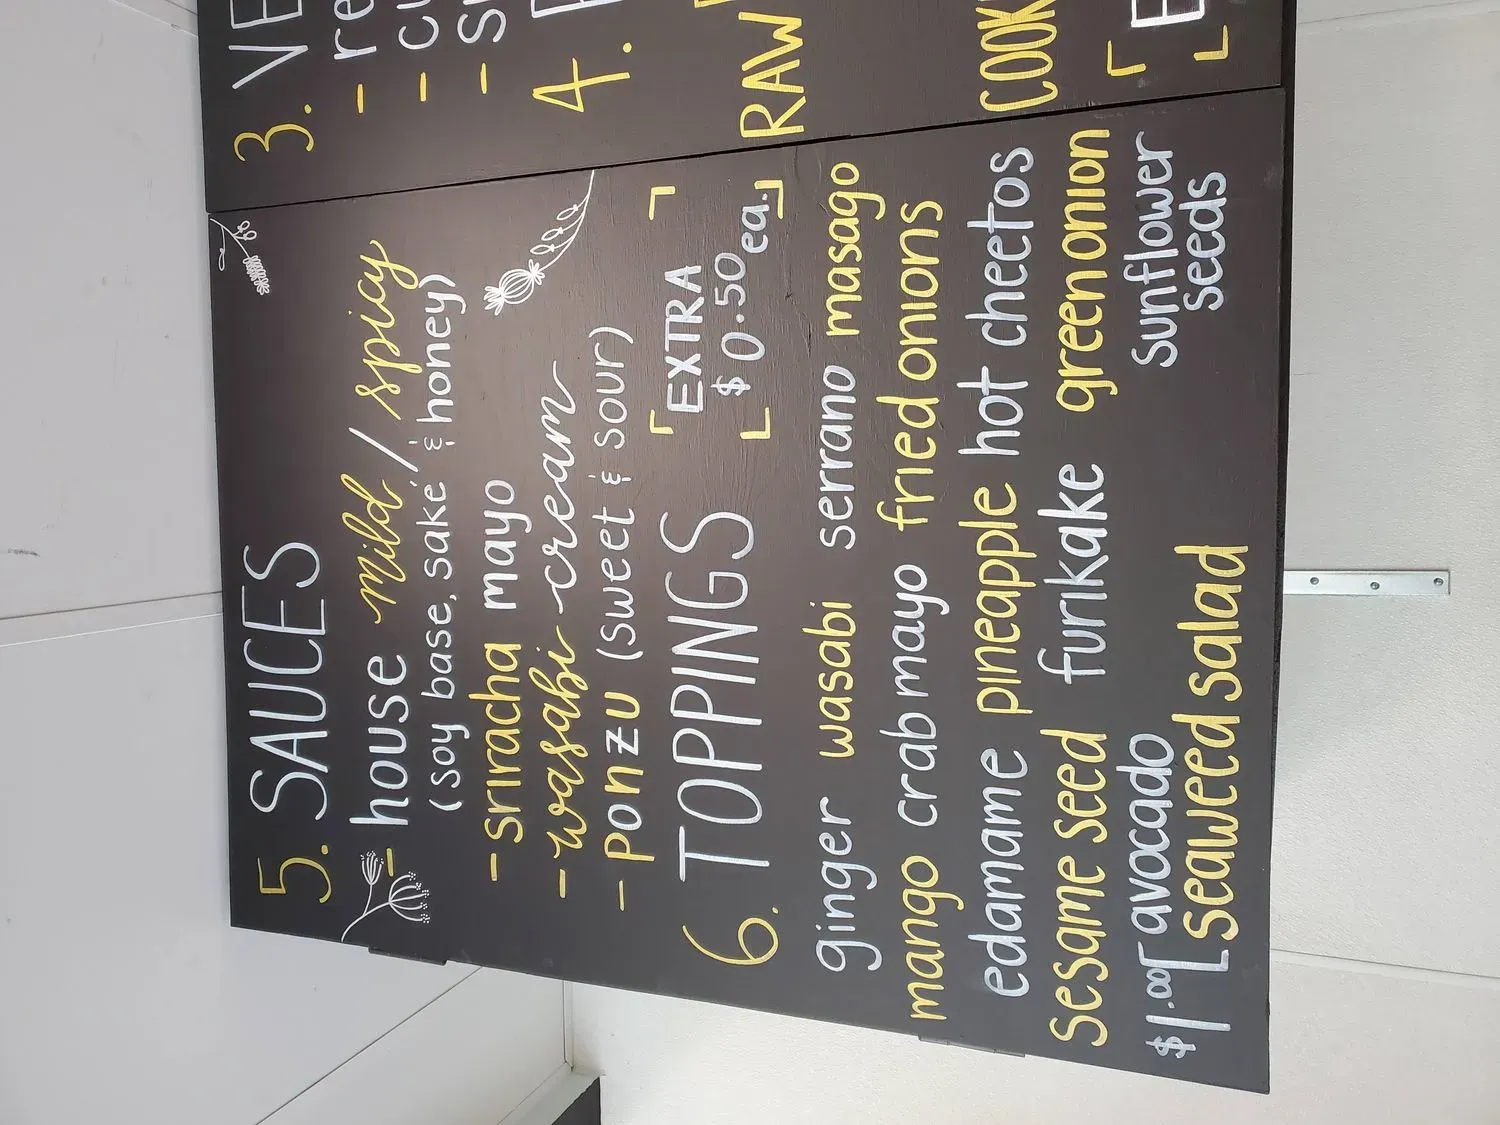 5. SAUCES
- house mild / spicy
(soy base, sake, & honey)
- sriracha mayo
- wasabi cream
- ponzu (sweet & sour)
6. TOPPINGS
EXTRA
$0.50 ea.
ginger wasabi serrano masago
mango crab mayo fried onions
edamame pineapple hot cheetos
sesame seed furikake green onion
$1.00 avocado
seaweed salad
sunflower
seeds
3.
4.
RAW